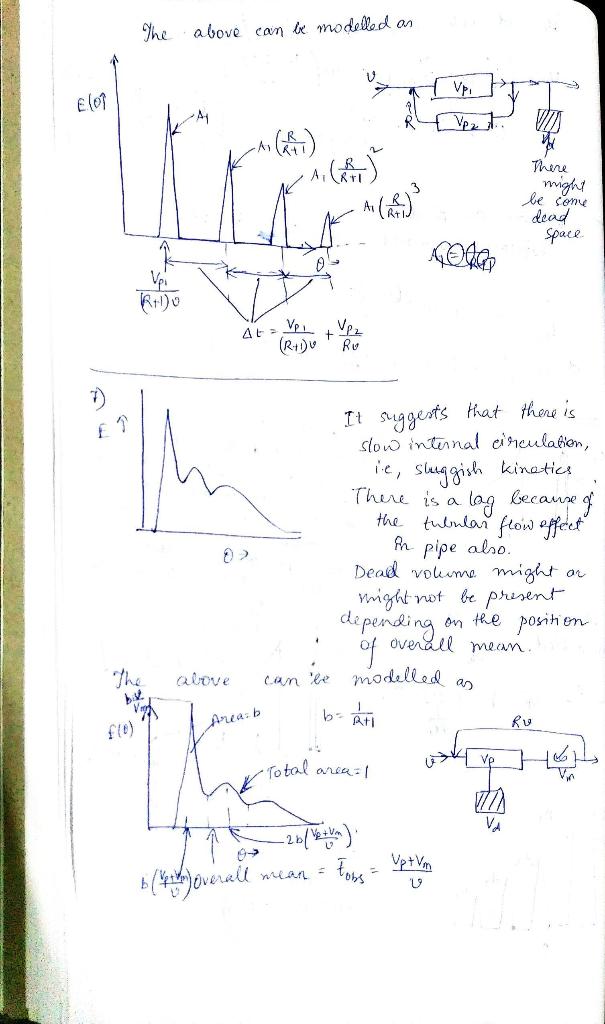 The above can be modelled as
E(θ)↑
A₁
A₁ (R/(R+1))
A₁ (R/(R+1))²
A₁ (R/(R+1))³
θ→
Vp₁/((R+1)υ)
Δt = Vp₁/((R+1)υ) + Vp₂/(Rυ)
υ
Vp₁
R
Vp₂
Vd
There
might
be some
dead
space
7)
E ↑
θ→
It suggests that there is
slow internal circulation,
i.e, sluggish kinetics
There is a lag because of
the tubular flow effect
in pipe also.
Dead volume might or
might not be present
depending on the position
of overall mean.
The above can be modelled as
E(θ)
Area=b
b = 1/(R+1)
Total area=1
2b((Vp+Vm)/υ)
θ→
b((Vp+Vm)/υ) Overall mean = t̄obs = (Vp+Vm)/υ
Rυ
υ
Vp
Vm
Vd